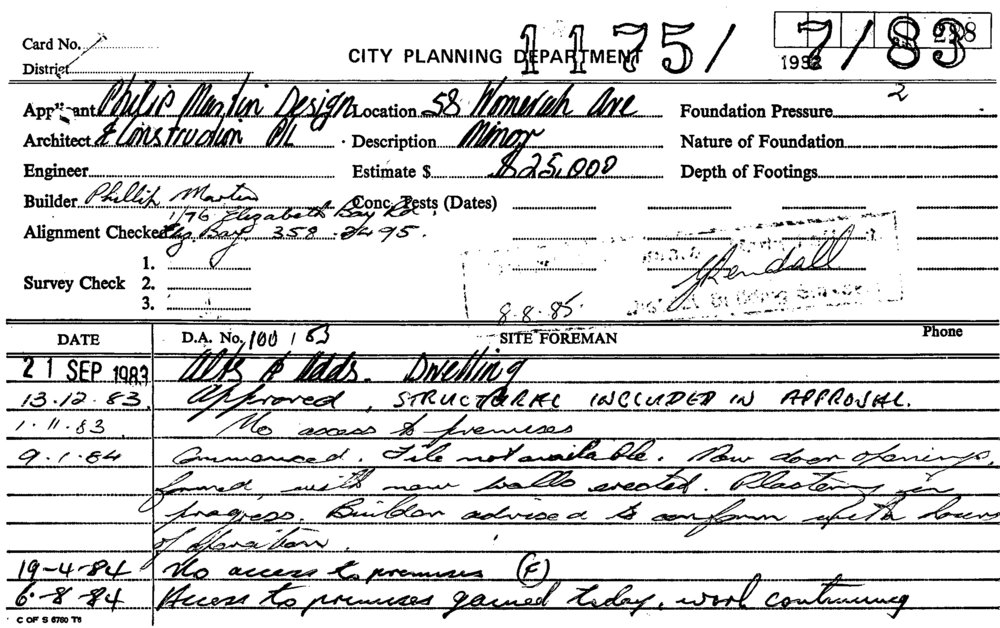 Card No.
District
CITY PLANNING DEPARTMENT
1175/ 7/83
Applicant Philip Martin Design Location 58 Womerah Ave Foundation Pressure 2
Architect & Construction P/L Description Minor Nature of Foundation
Engineer Estimate $ $25,000 Depth of Footings
Builder Phillip Martin Conc. Tests (Dates)
1/76 Elizabeth Bay Rd.
Alignment Checked Eliz Bay. 358.2495.
1.
Survey Check 2.
3.
8.8.85
DATE D.A. No. 100 / 83 SITE FOREMAN Phone
21 SEP 1983 Alts & Adds. Dwelling
13.12.83. Approved, STRUCTURAL INCLUDED IN APPROVAL.
1.11.83. No access to premises
9.1.84 Commenced. File not available. New door openings,
formed, with new walls erected. Plastering in
progress. Builder advised to conform with hours
of operation.
19-4-84 No access to premises (F)
6-8-84 Access to premises gained today, work continuing
C OF S 6760 T6